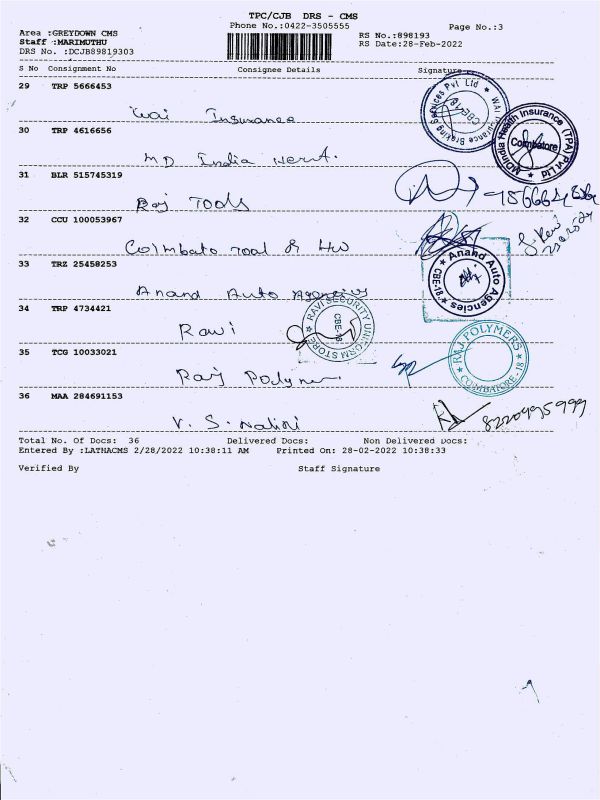 TPC/CJB DRS - CMS
Phone No.:0422-3505555
Page No.:3
Area :GREYDOWN CMS
RS No.:898193
Staff :MARIMUTHU
RS Date:28-Feb-2022
DRS No. :DCJB89819303
S No Consignment No Consignee Details Signature
29 TRP 5666453
Wai Insurance
WAI Insurance Broking Services Pvt Ltd
30 TRP 4616656
MD India
MDIndia Health Insurance (TPA) Pvt Ltd
Coimbatore
31 BLR 515745319
Raj Tools
32 CCU 100053967
Coimbato Tool & HW
33 TRZ 25458253
Anand Auto Agencies
Anand Auto Agencies
CBE-18
34 TRP 4734421
Ravi
RAVI SECURITY UNIFORM STORE
CBE-18
35 TCG 10033021
Raj Polymer
RAJ POLYMERS
COIMBATORE - 18
36 MAA 284691153
V. S. Nalini
8220995999
Total No. Of Docs: 36 Delivered Docs: Non Delivered Docs:
Entered By :LATHACMS 2/28/2022 10:38:11 AM Printed On: 28-02-2022 10:38:33
Verified By Staff Signature